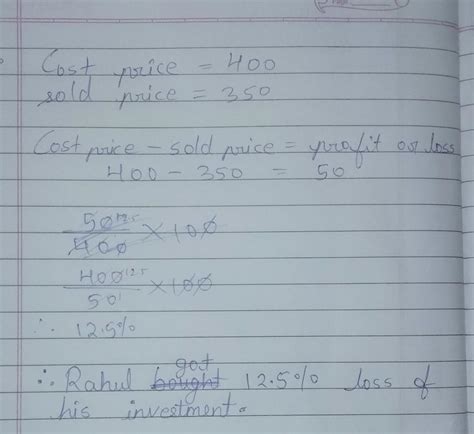 Cost price = 400
sold price = 350
Cost price - sold price = profit or loss
400 - 350 = 50
50 12.5 / 400 × 100
400 12.5 / 50 1 × 100
∴ 12.5%
got
∴ Rahul bought 12.5% loss of
his investment.